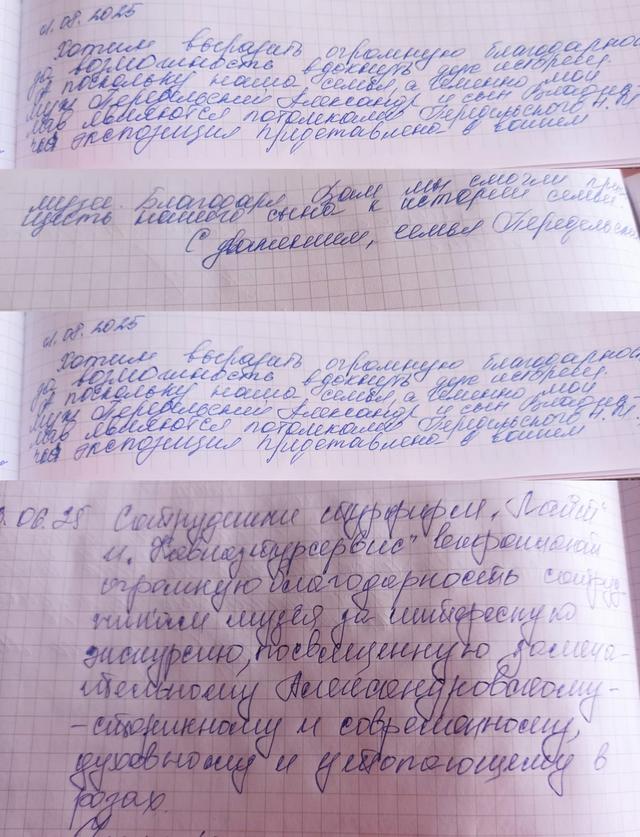 01.08.2025
Хотим выразить огромную благодарнос
за возможность вдохнуть дух истории
поскольку наша семья, а именно мой
муж Передельский Александр и сын Владими-
мир являются потомками Передельского Н.И.
чья экспозиция представлена в вашем
музее. Благодаря Вам мы смогли при-
щесть нашего сына к истории семьи
С уважением, семья Передельск
01.08.2025
Хотим выразить огромную благодарнос
за возможность вдохнуть дух истории
поскольку наша семья, а именно мой
муж Передельский Александр и сын Владими-
мир являются потомками Передельского Н.И.
чья экспозиция представлена в вашем
.06.25 Сотрудники турфирм „Лайт"
и „Кавказтурсервис" выражают
огромную благодарность сотруд-
никам музея за интересную
экскурсию, посвященную замеча-
тельному Александровскому-
-старинному и современному,
духовному и утопающему в
розах.